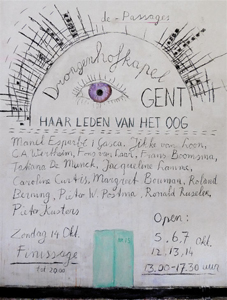 de Passages
Drongenhofkapel
GENT
HAAR LEDEN VAN HET OOG
Marcel Esparbé i Gasca, Jikke van Loon,
G.A. Wertheim, Fons van Laar, Frans Boomsma,
Tatiana De Munck, Jacqueline
Caroline Coolen, Margreet Bouman, Roland
Berning, Pieter W. Postma, Ronald
Pieter Kusters
Zondag 14 Okt.
Finissage
tot 20.00
Open:
5.6.7 Okt
12, 13, 14
13.00-17.30 uur